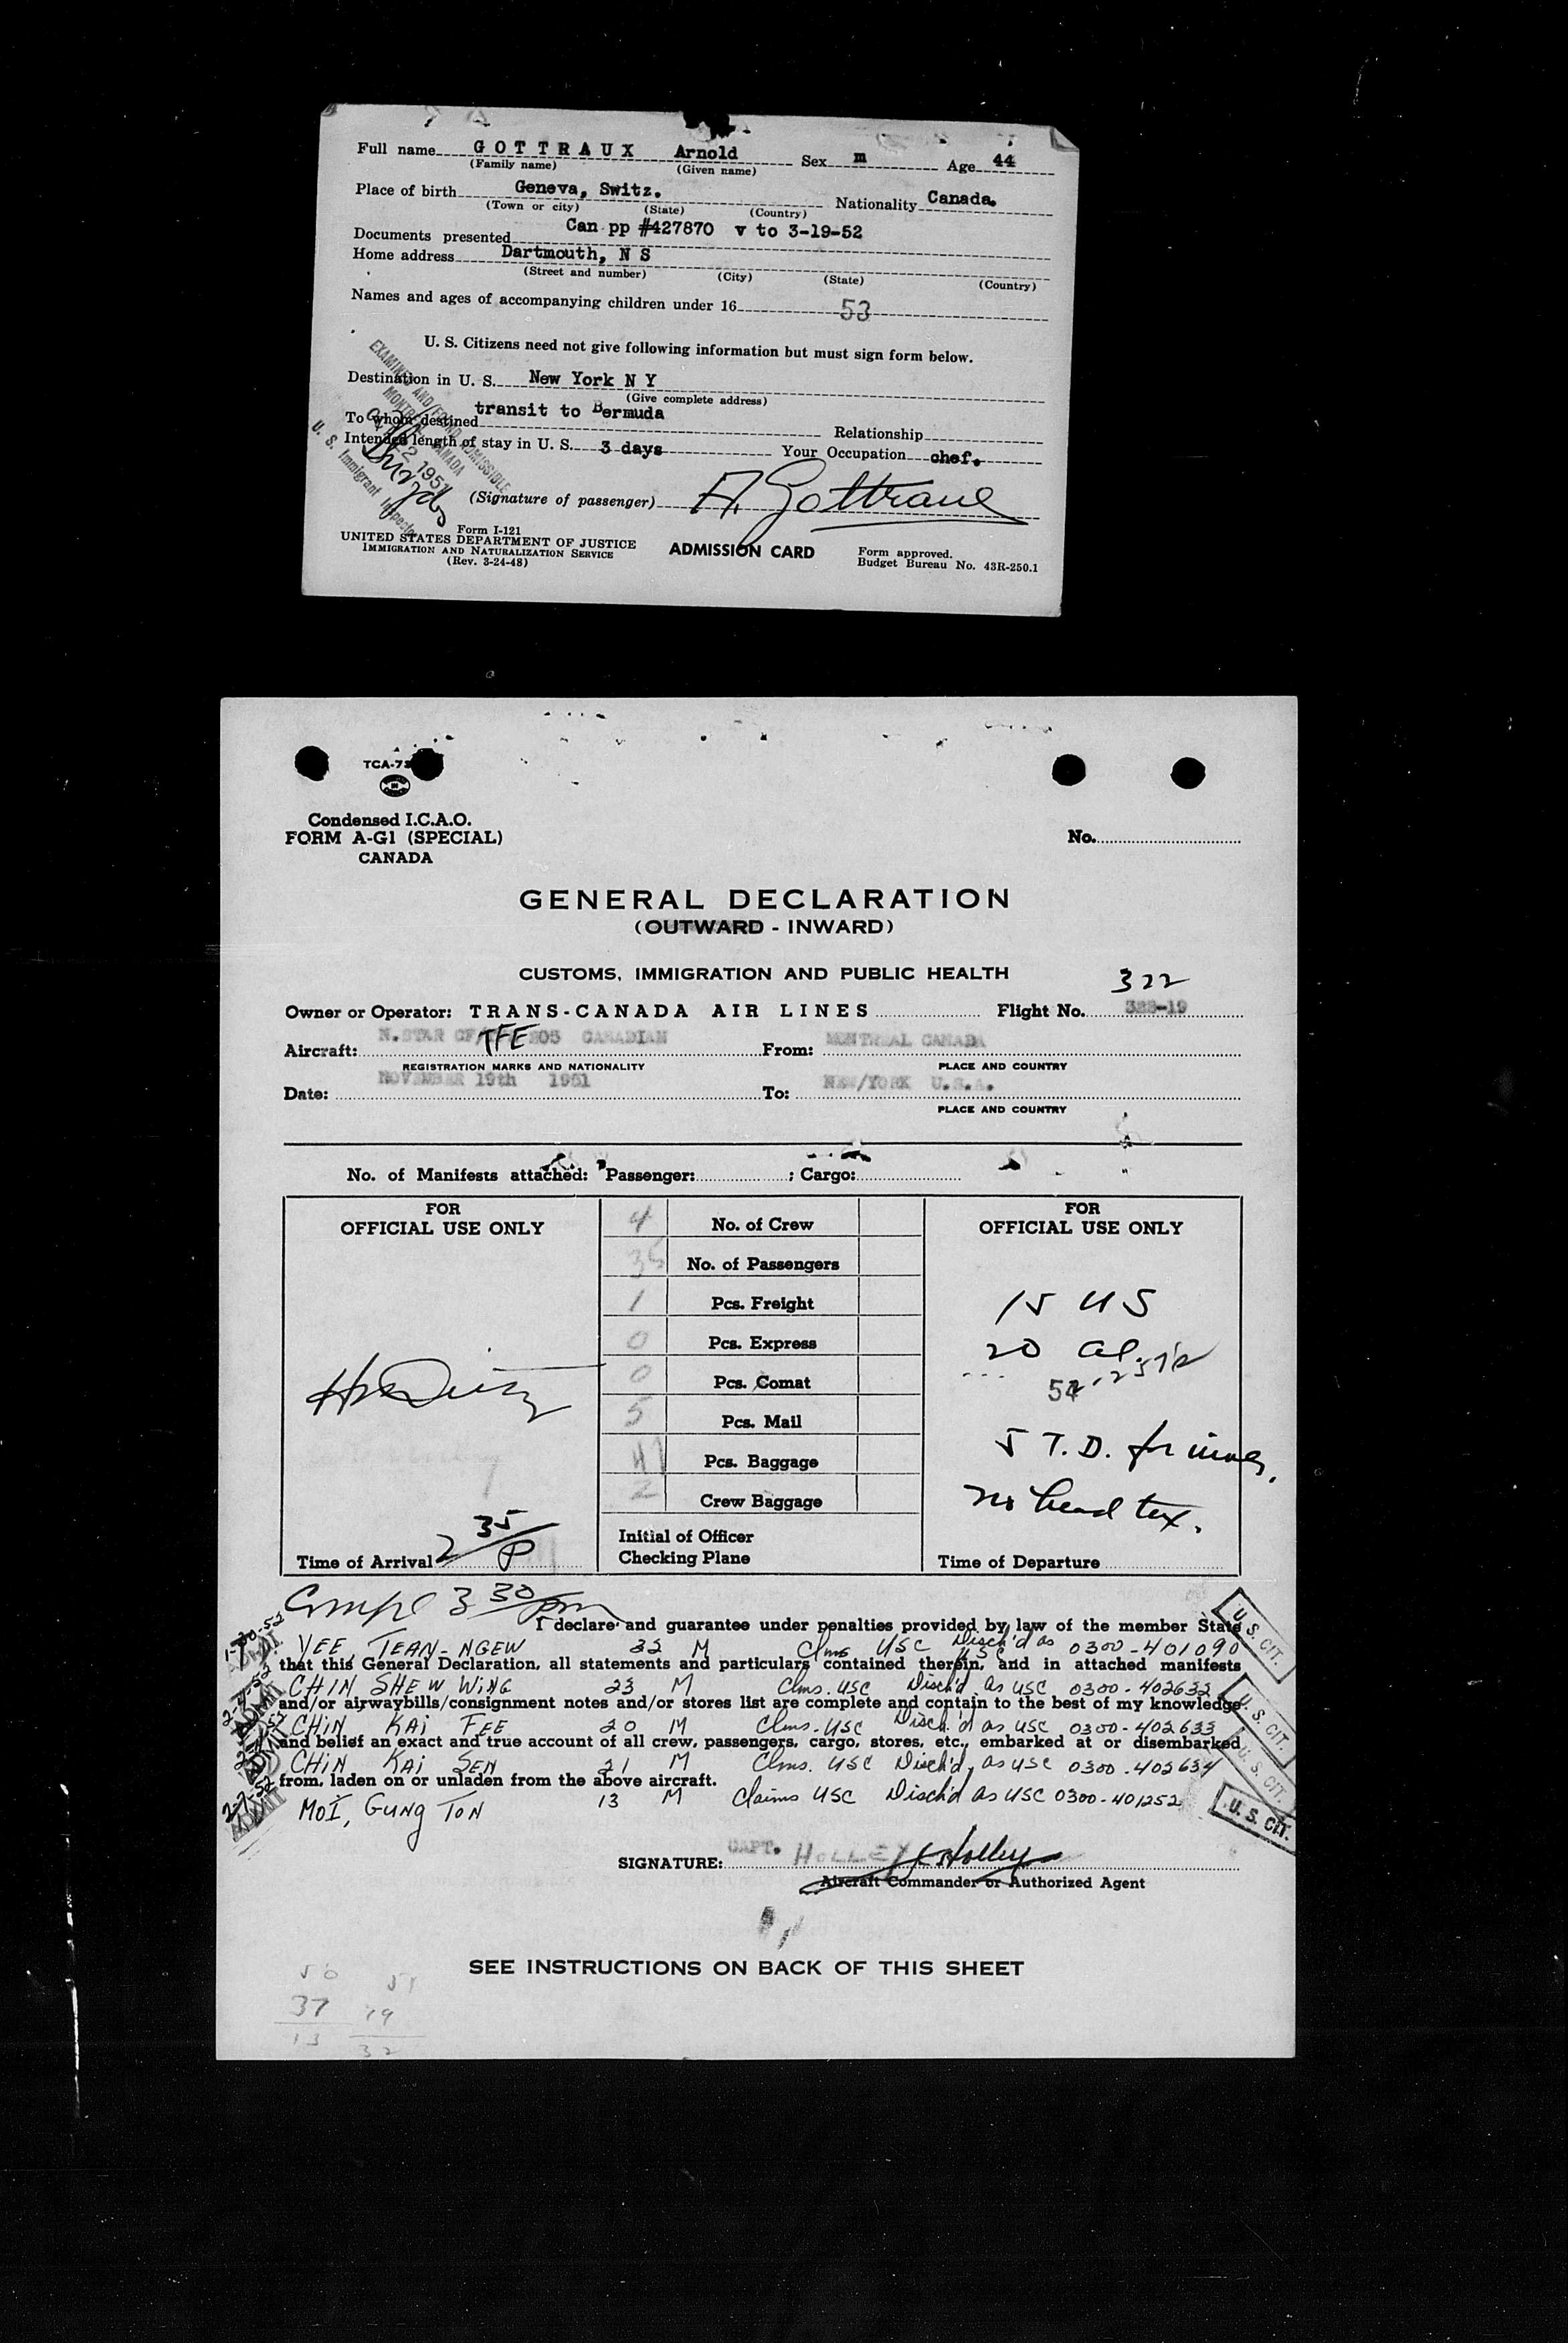 Full name GOTTRAUX Arnold Sex m Age 44
(Family name) (Given name)
Place of birth Geneva, Switz. Nationality Canada.
(Town or city) (State) (Country)
Documents presented Can pp #427870 v to 3-19-52
Home address Dartmouth, N S
(Street and number) (City) (State) (Country)
Names and ages of accompanying children under 16 53
U. S. Citizens need not give following information but must sign form below.
Destination in U. S. New York N Y
(Give complete address)
To whom destined transit to Bermuda Relationship
Intended length of stay in U. S. 3 days Your Occupation chef.
EXAMINED AND FOUND ADMISSIBLE
MONTREAL CANADA
22 1951
U. S. Immigrant Inspector
(Signature of passenger) A. Gottraux
Form I-121
UNITED STATES DEPARTMENT OF JUSTICE
IMMIGRATION AND NATURALIZATION SERVICE
(Rev. 3-24-48)
ADMISSION CARD
Form approved.
Budget Bureau No. 43R-250.1
TCA-73
Condensed I.C.A.O.
FORM A-G1 (SPECIAL)
CANADA
No.
GENERAL DECLARATION
(OUTWARD - INWARD)
CUSTOMS, IMMIGRATION AND PUBLIC HEALTH
322
Owner or Operator: TRANS-CANADA AIR LINES Flight No.
Aircraft: N.STAR CF TFE 205 CANADIAN From: MONTREAL CANADA
REGISTRATION MARKS AND NATIONALITY PLACE AND COUNTRY
Date: NOVEMBER 19th 1951 To: NEW/YORK U.S.A.
PLACE AND COUNTRY
No. of Manifests attached: Passenger: ; Cargo:
FOR OFFICIAL USE ONLY
4 No. of Crew
35 No. of Passengers
1 Pcs. Freight
0 Pcs. Express
0 Pcs. Comat
5 Pcs. Mail
41 Pcs. Baggage
2 Crew Baggage
Initial of Officer
Checking Plane
FOR OFFICIAL USE ONLY
15 US
20 al.
5 T.D. for
no head tax.
Time of Arrival 2 35/P
Time of Departure
Compl 3 30/pm
I declare and guarantee under penalties provided by law of the member State
1-30-52 ADMIT YEE, TEAN-NGEW 32 M Clms USC Disch'd as USC 0300-401090 U. S. CIT.
that this General Declaration, all statements and particulars contained therein, and in attached manifests
ADMIT CHIN SHEW WING 23 M Clms. USC Disch'd as USC 0300-402632 U. S. CIT.
and/or airwaybills/consignment notes and/or stores list are complete and contain to the best of my knowledge
ADMIT CHIN KAI FEE 20 M Clms. USC Disch'd as USC 0300-402633 U. S. CIT.
and belief an exact and true account of all crew, passengers, cargo, stores, etc., embarked at or disembarked
CHIN KAI SEN 21 M Clms. USC Disch'd, as USC 0300-402634
from, laden on or unladen from the above aircraft.
2-7-52 ADMIT MOI, GUNG TON 13 M Claims USC Disch'd as USC 0300-401252 U. S. CIT.
SIGNATURE: CAPT. HOLLEY Holley
Aircraft Commander or Authorized Agent
SEE INSTRUCTIONS ON BACK OF THIS SHEET
50 51
37 19
13 32